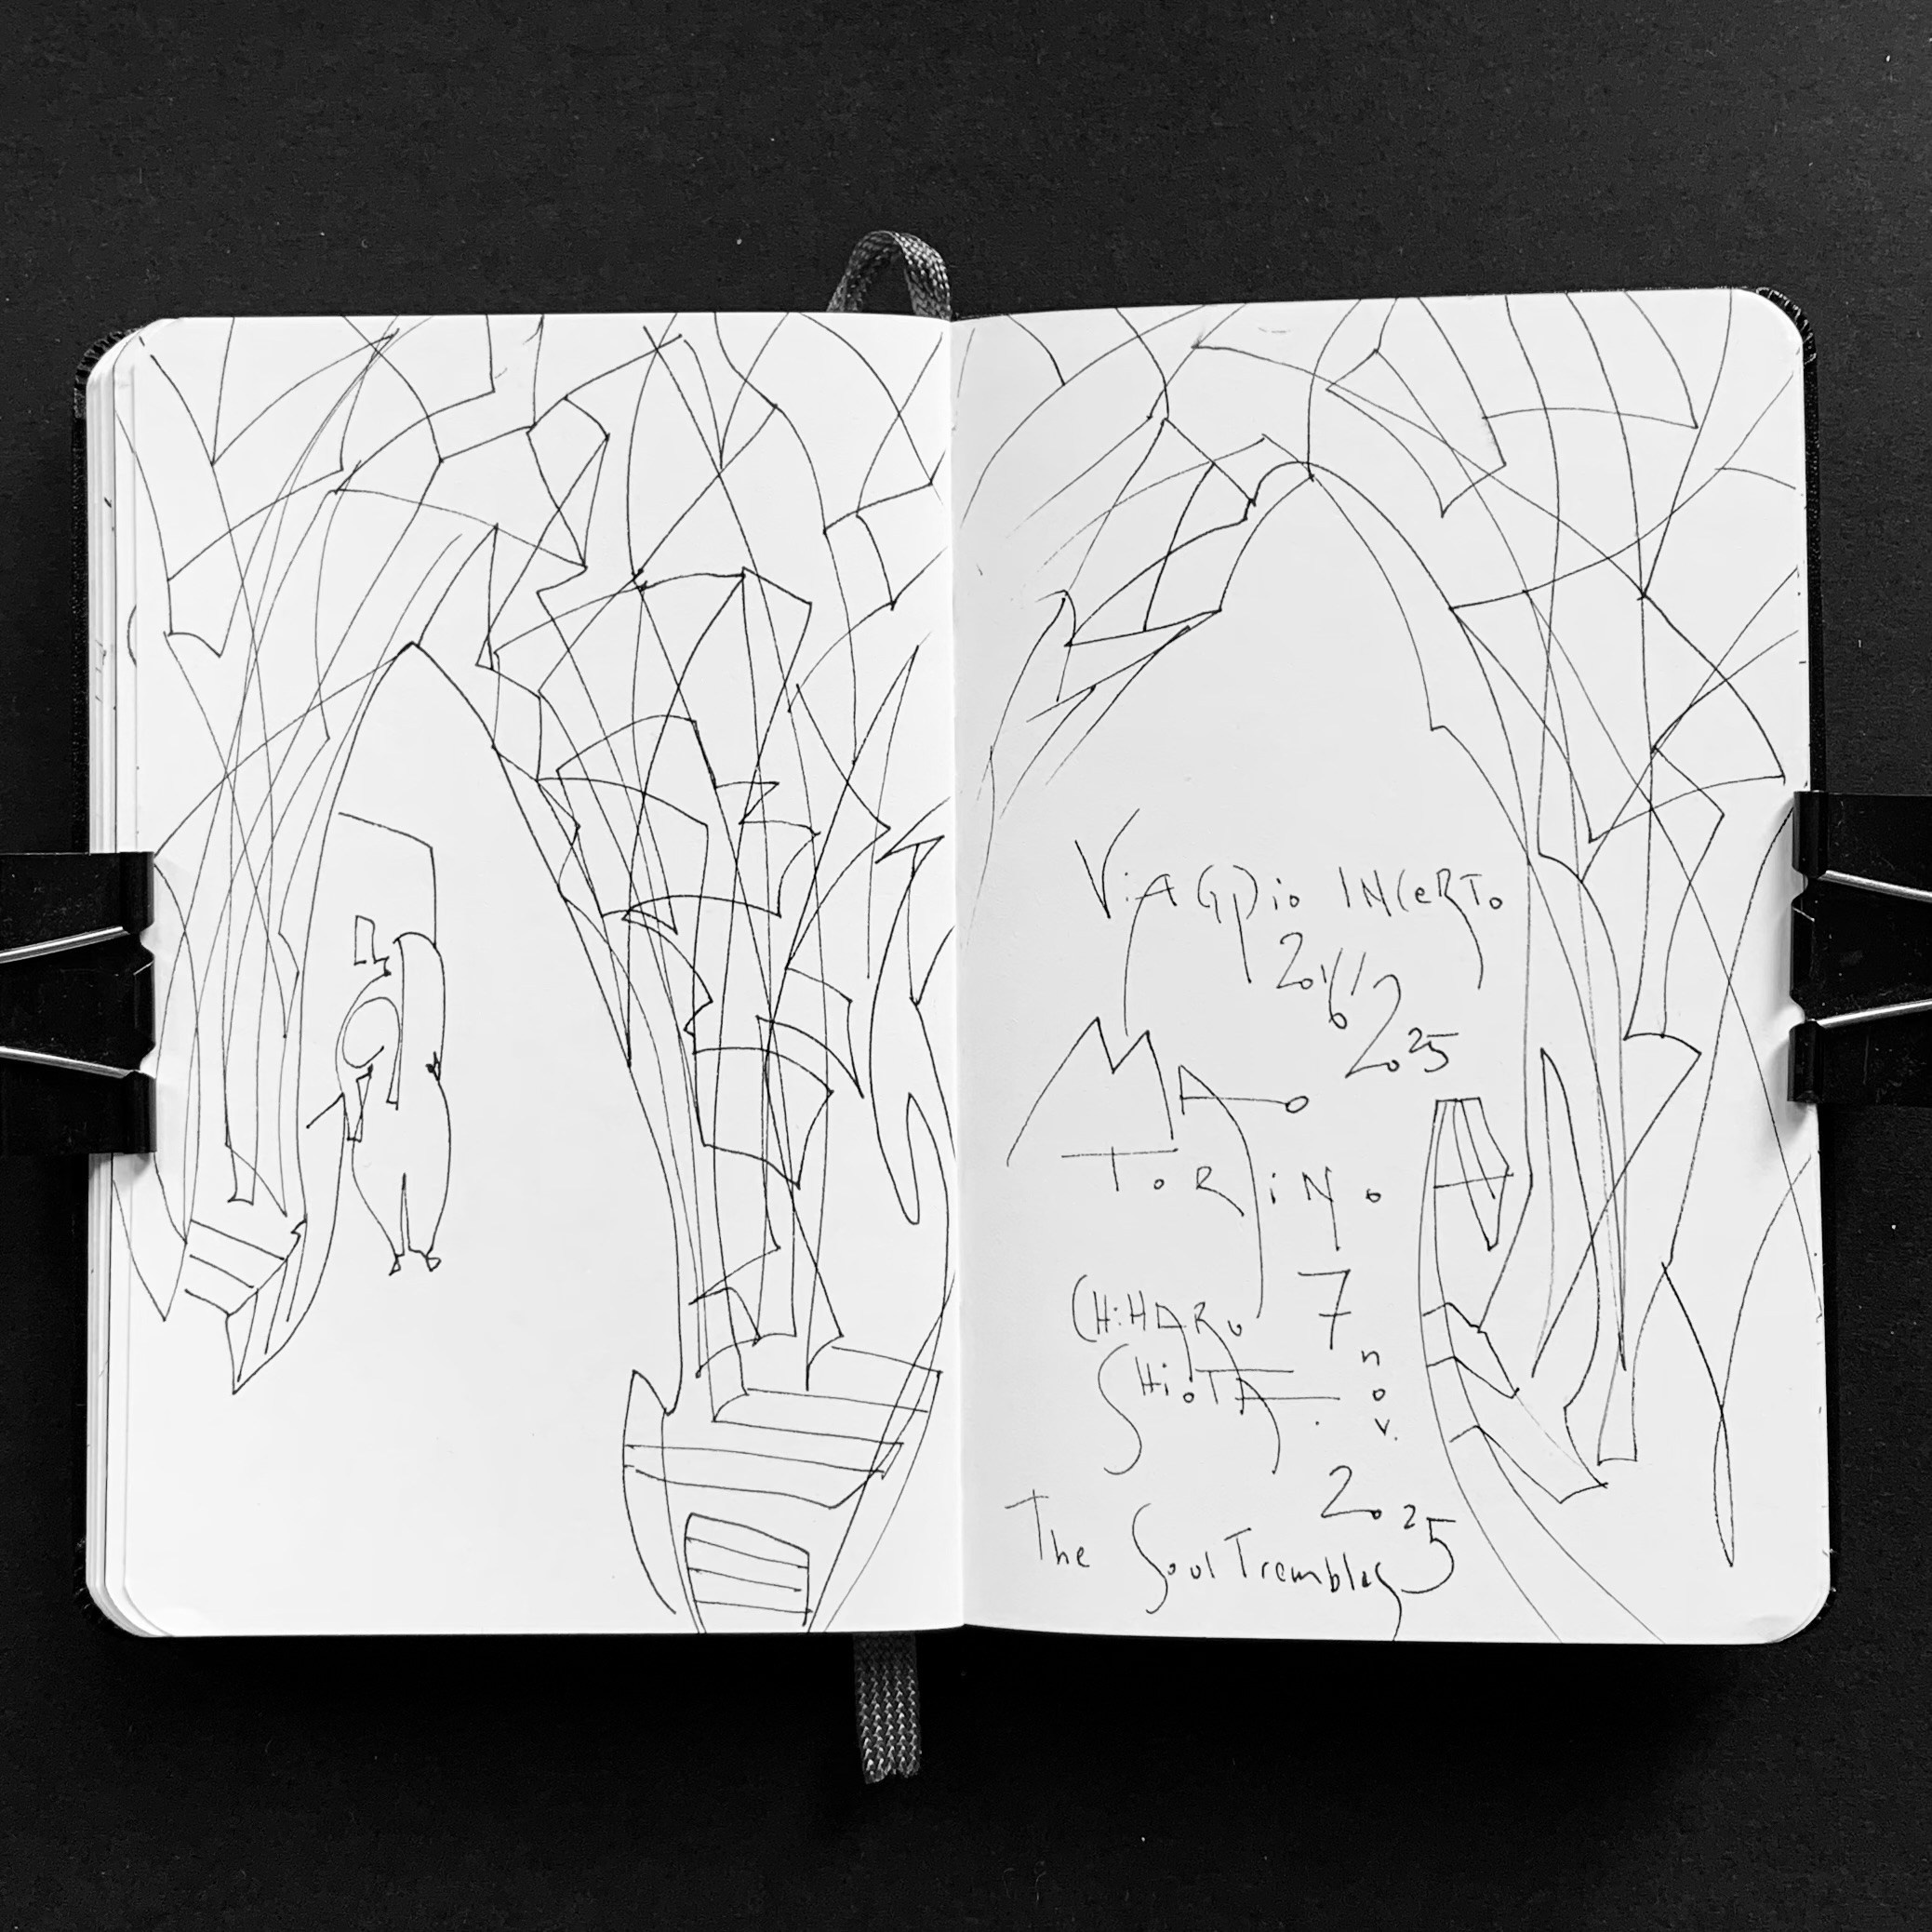 ViAGGio INCeRTo
2016/2025
MAO
ToRiNo
7
CHiHARu
nov.
SHioTA.
2025
The Soul Trembles